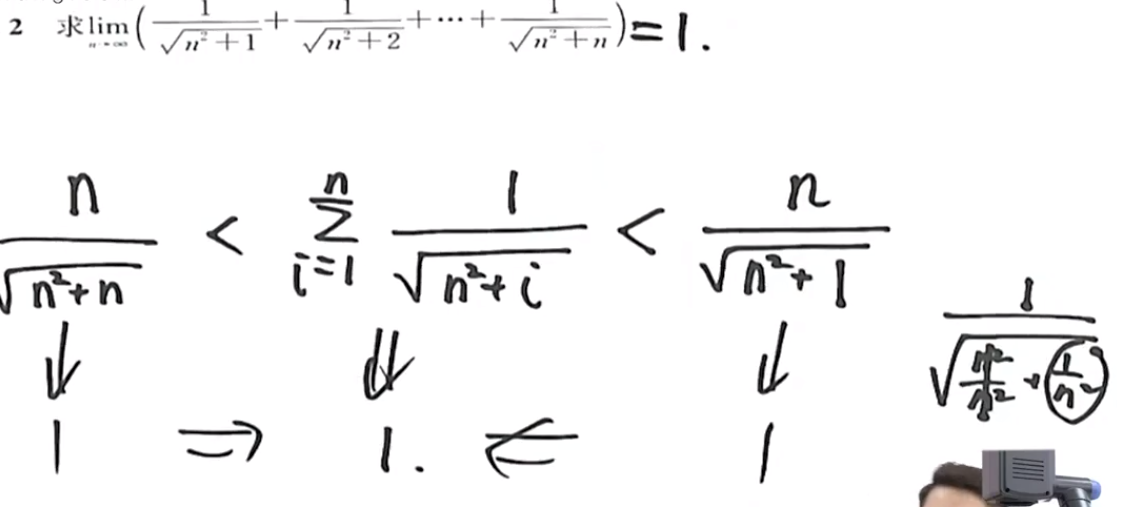 2 求 lim n→∞ ( 1/√(n²+1) + 1/√(n²+2) + ··· + 1/√(n²+n) ) = 1.
n/√(n²+n) < n∑i=1 1/√(n²+i) < n/√(n²+1)
1/√(n²/n² + 1/n²)
↓ ⇓ ↓
1 ⇒ 1. ⇐ 1